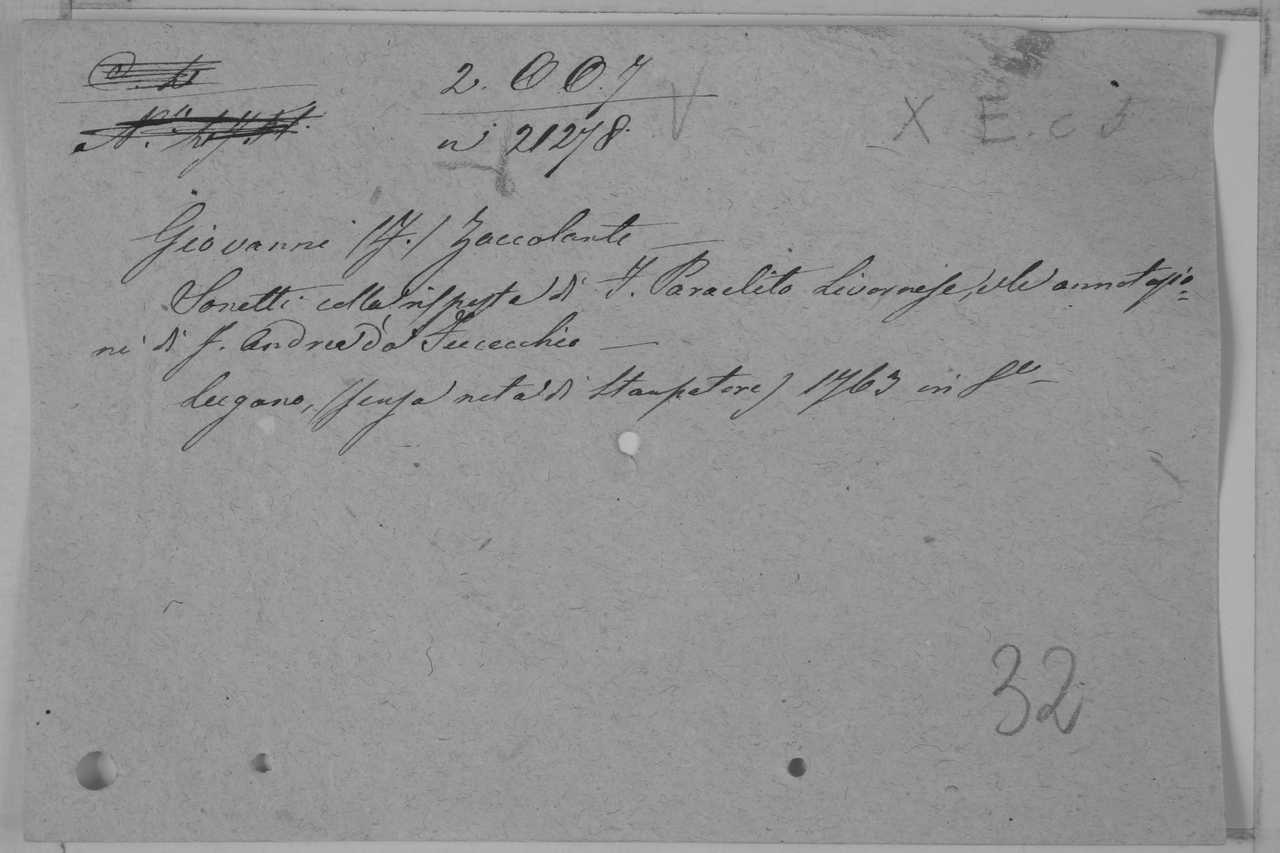 2. O O. 7
n° 21278.
X E. c 5
Giovanni (F.) Zaccolante
Sonetti colla risposta di F. Paraclito Livornese, e le annotazio=
ni di f. Andrea da Fucecchio
Lugano, (senza nota di Stampatore) 1763 in 8°
32